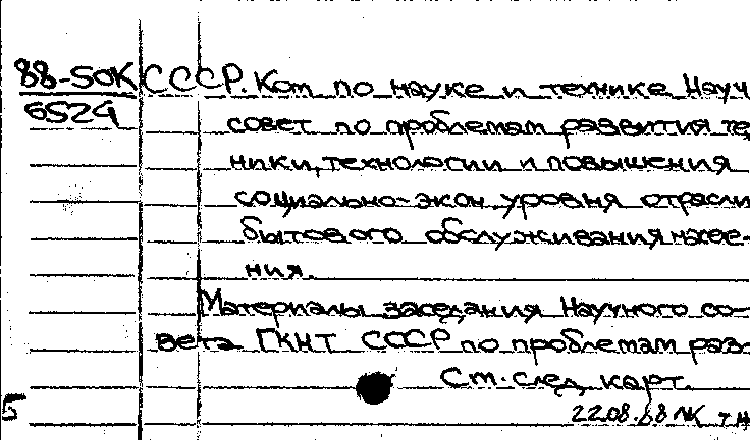 88-50К СССР. Ком по науке и технике Науч
6524 совет по проблемам развития те
ники, технологии и повышения
социально-экон уровня отрасли
бытового обслуживания насе-
ния.
Материалы заседания Научного со-
вета ГКНТ СССР по проблемам раз
См. след. карт.
5 22.08.88